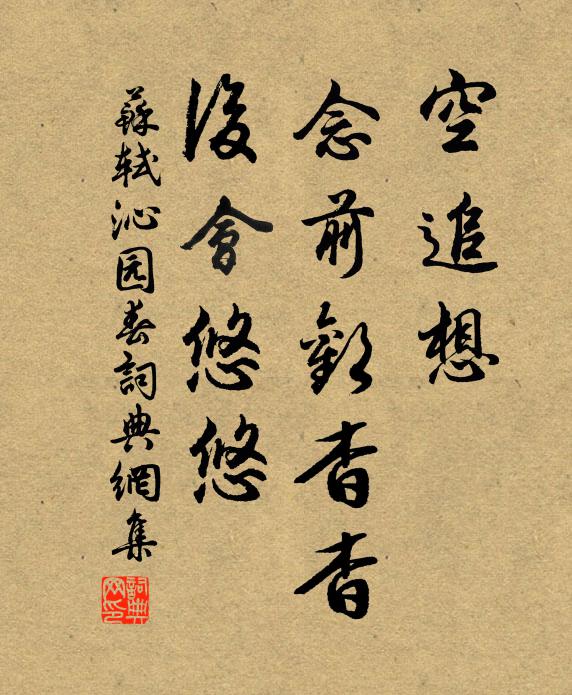 空追想
念前歡杳杳
後會悠悠
蘇軾沁园春詞典網集
詞典网印